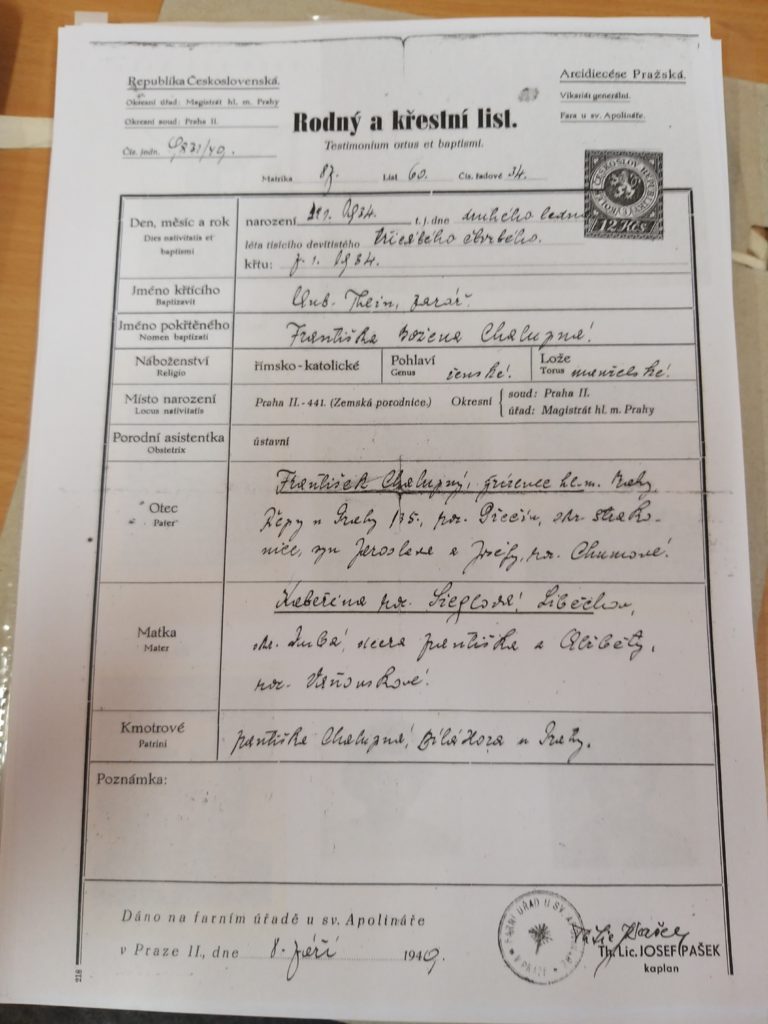 Republika Československá.
Okresní úřad: Magistrát hl. m. Prahy
Okresní soud: Praha II.
Čís. jedn. 9831/49.
Arcidiecése Pražská.
Vikariát generální.
Fara u sv. Apolináře.
Rodný a křestní list.
Testimonium ortus et baptismi.
Matrika 87 List 60. Čís. řadové 34.
ČESKOSLOV. REPUBLIKA
12 Kčs
Den, měsíc a rok
Dies nativitatis et baptismi
narození 2./1. 1934. t. j. dne druhého ledna
léta tisícího devítistého třicátého čtvrtého.
křtu: 7. 1. 1934.
Jméno křtícího
Baptizavit
Ant. Thein, farář.
Jméno pokřtěného
Nomen baptizati
Františka Božena Chalupná
Náboženství
Religio
římsko-katolické
Pohlaví
Genus
ženské
Lože
Torus
manželské
Místo narození
Locus nativitatis
Praha II.-441. (Zemská porodnice.) Okresní soud: Praha II.
úřad: Magistrát hl. m. Prahy
Porodní asistentka
Obstetrix
ústavní
Otec
Pater
František Chalupný, zřízenec hl. m. Prahy
Řepy u Prahy 135., nar. okr. Strako-
nice, syn Jaroslava a Josefy, roz. Chumové.
Matka
Mater
Kateřina roz. Sieglová, Liběchov,
okr. Dubá, dcera Františka a Alžběty,
roz. Vaňourkové.
Kmotrové
Patrini
Františka Chalupná, Bílá Hora u Prahy.
Poznámka:
Dáno na farním úřadě u sv. Apolináře
v Praze II., dne 8. září 1949.
FARNÍ ÚŘAD U SV. APOLINÁŘE V PRAZE
Th. Lic. Pašek
Th. Lic. JOSEF PAŠEK
kaplan
218